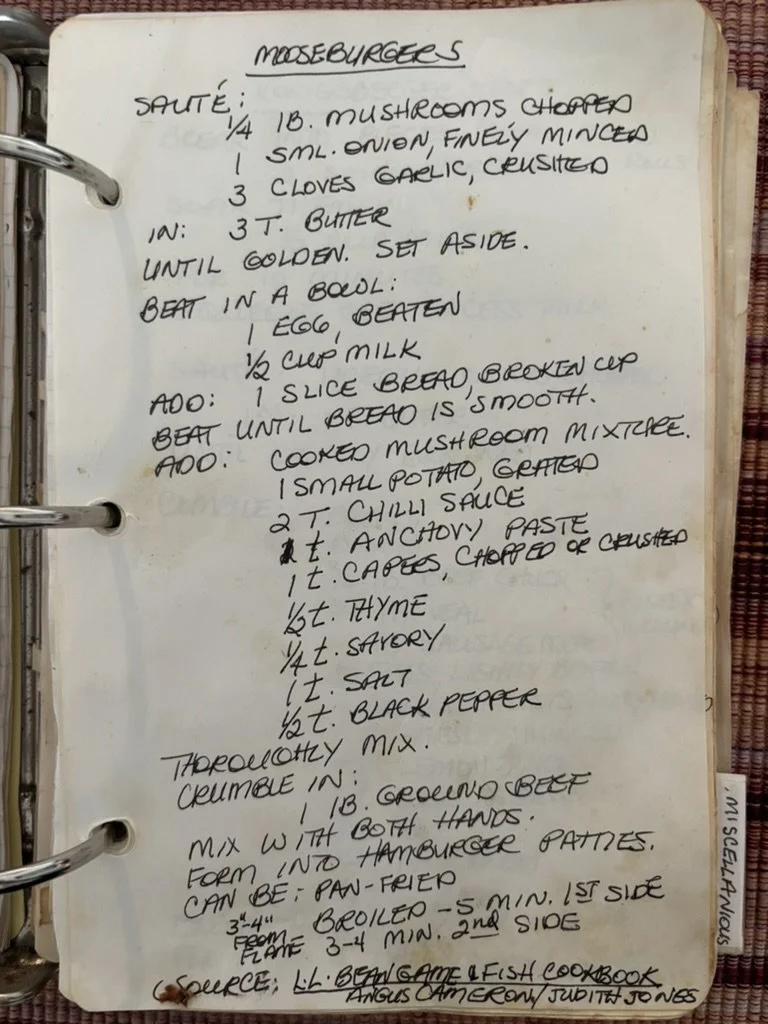 MOOSEBURGERS
SAUTÉ:
1/4 lB. MUSHROOMS, CHOPPED
1 SML. ONION, FINELY MINCED
3 CLOVES GARLIC, CRUSHED
IN: 3 T. BUTTER
UNTIL GOLDEN. SET ASIDE.
BEAT IN A BOWL:
1 EGG, BEATEN
1/2 CUP MILK
ADD: 1 SLICE BREAD, BROKEN UP
BEAT UNTIL BREAD IS SMOOTH.
ADD: COOKED MUSHROOM MIXTURE.
1 SMALL POTATO, GRATED
2 T. CHILLI SAUCE
1 t. ANCHOVY PASTE
1 t. CAPERS, CHOPPED OR CRUSHED
1/2 t. THYME
1/4 t. SAVORY
1 t. SALT
1/2 t. BLACK PEPPER
THOROUGHLY MIX.
CRUMBLE IN:
1 lB. GROUND BEEF
MIX WITH BOTH HANDS.
FORM INTO HAMBURGER PATTIES.
CAN BE: PAN-FRIED
3"-4" FROM FLAME BROILED - 5 MIN. 1ST SIDE
3-4 MIN. 2nd SIDE
SOURCE: L.L. BEAN GAME & FISH COOKBOOK
ANGUS CAMERON/JUDITH JONES
MISCELLANIOUS